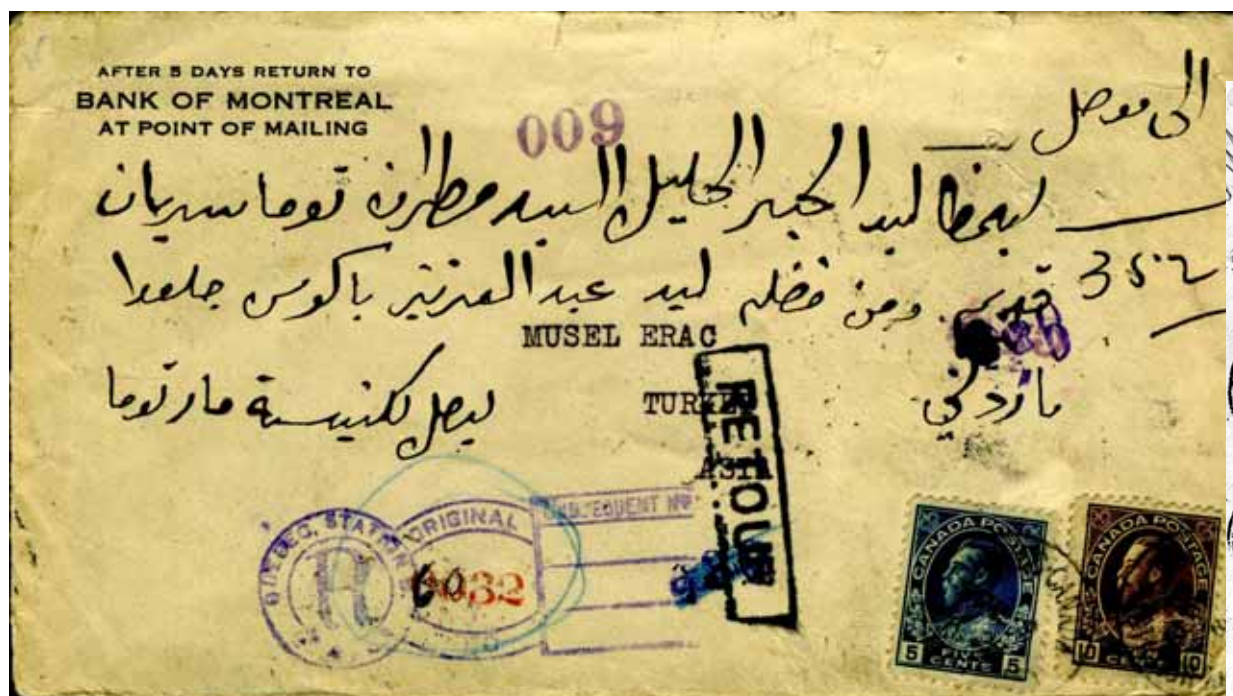 AFTER 5 DAYS RETURN TO
BANK OF MONTREAL
AT POINT OF MAILING
009
الى موصل
ليد الحبر الجليل السيد مطران توما سريان
352
قديم ومن فضله ليد عبد العزيز باكوس جلعدا
MUSEL ERAC
ماردلي
TURKEY
ليصل لكنيسة مار توما
ASIA
RETOUR
QUEBEC, STATION B
R
ORIGINAL
32
SUBSEQUENT Nº
CANADA POSTAGE
5 FIVE CENTS 5
CANADA POSTAGE
10 CENTS 10